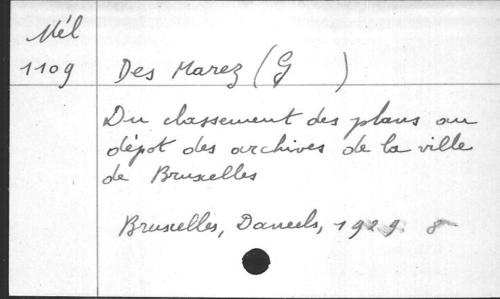 Mél
1109 Des Marez (G )
Du classement des plans au
dépot des archives de la ville
de Bruxelles
Bruxelles, Daneels, 1929. 8